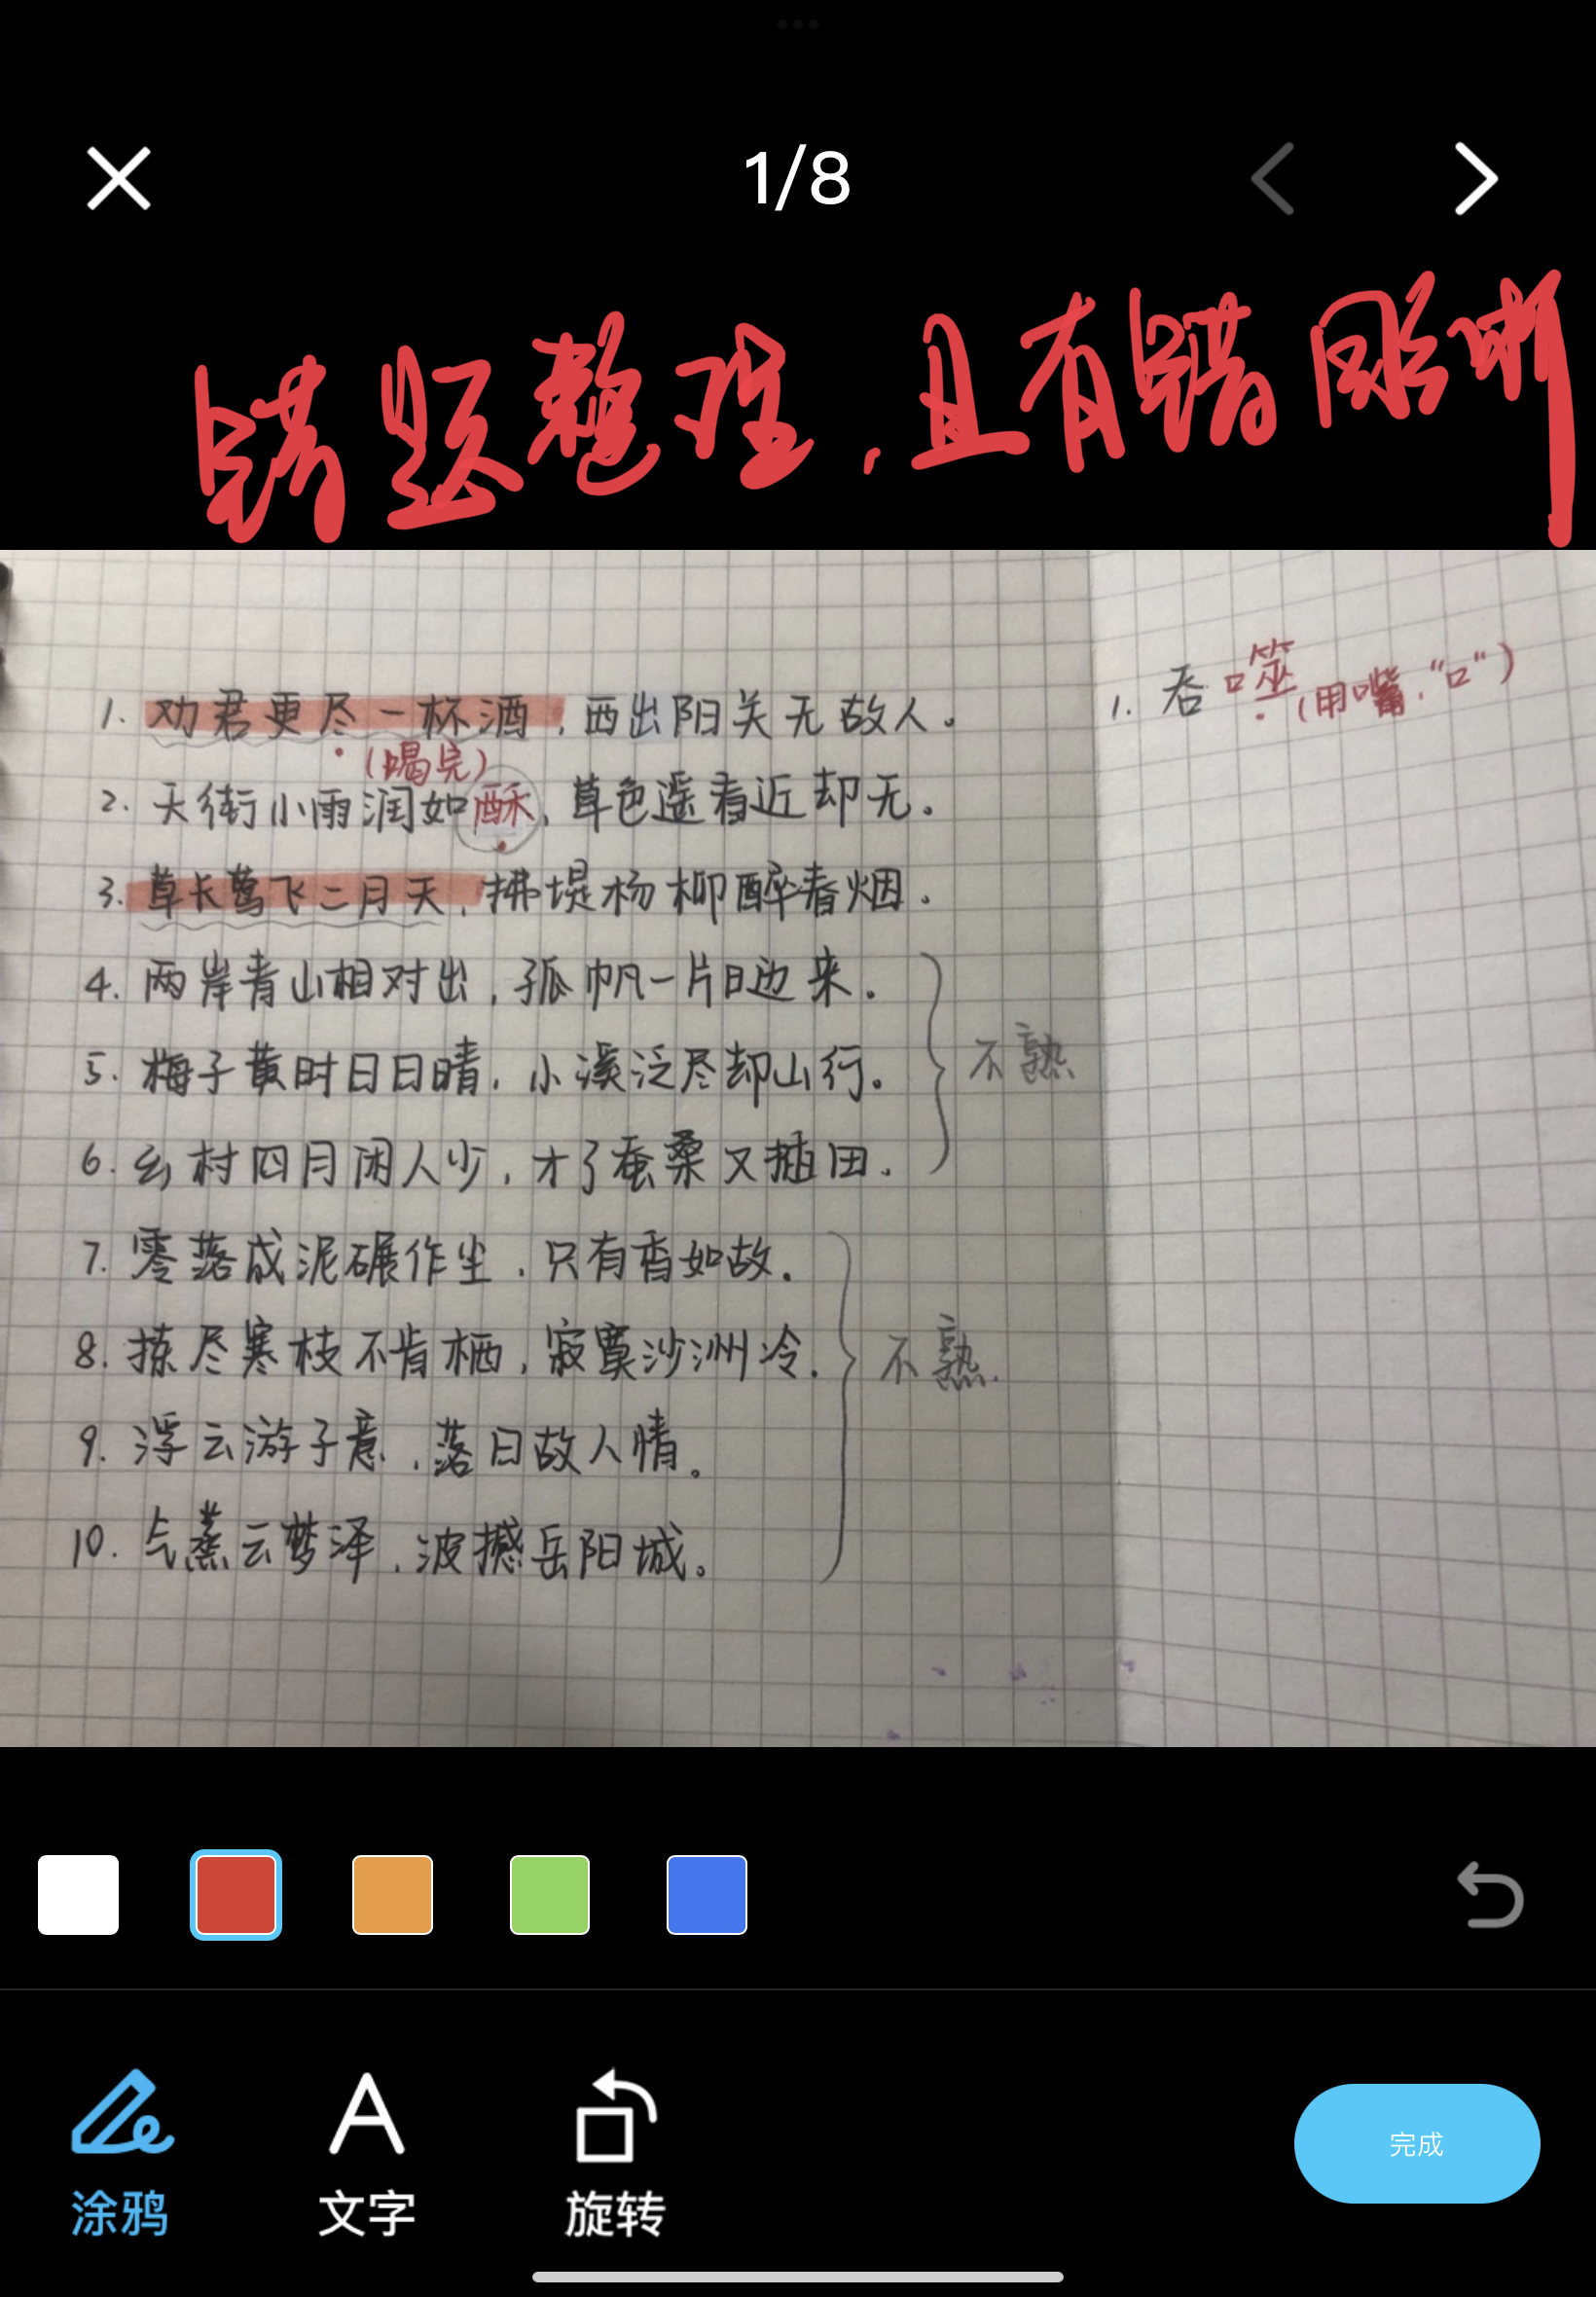 1/8
错题整理,且有错因分析
1. 劝君更尽一杯酒,西出阳关无故人。
(喝完)
2. 天街小雨润如酥,草色遥看近却无。
3. 草长莺飞二月天,拂堤杨柳醉春烟。
4. 两岸青山相对出,孤帆一片日边来。
5. 梅子黄时日日晴,小溪泛尽却山行。
不熟
6. 乡村四月闲人少,才了蚕桑又插田。
7. 零落成泥碾作尘,只有香如故。
8. 拣尽寒枝不肯栖,寂寞沙洲冷。
不熟.
9. 浮云游子意,落日故人情。
10. 气蒸云梦泽,波撼岳阳城。
1. 吞噬(用嘴,“口”)
涂鸦
文字
旋转
完成